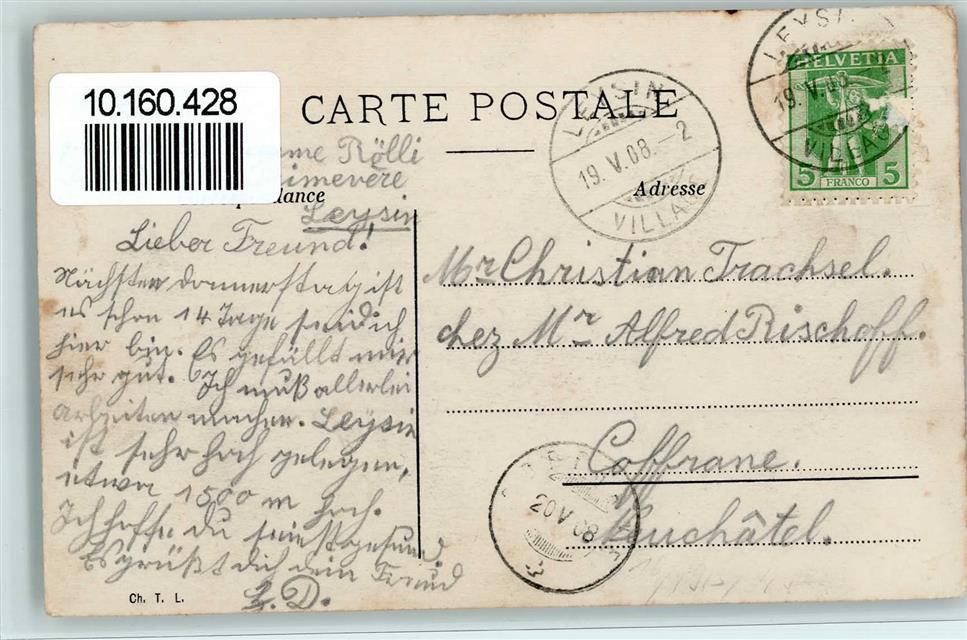 10.160.428
CARTE POSTALE
Rölli
Leysin
Adresse
Lieber Freund!
Nächsten donnerstag ist
es schon 14 Tage seit ich
hier bin. Es gefällt mir
sehr gut. Ich muß allerlei
arbeiten machen. Leysin
ist sehr hoch gelegen,
etwa 1500 m hoch.
Ich hoffe du seiest gesund.
Es grüßt dich dein Freund
Ch. T. L.
LEYSIN
19.V.08.-2
VILLAGE
LEYSIN
19.V.08
VILLAGE
HELVETIA
5 FRANCO 5
Mr Christian Trachsel.
chez Mr Alfred Rischoff.
Coffrane.
Neuchâtel.
20 V 08